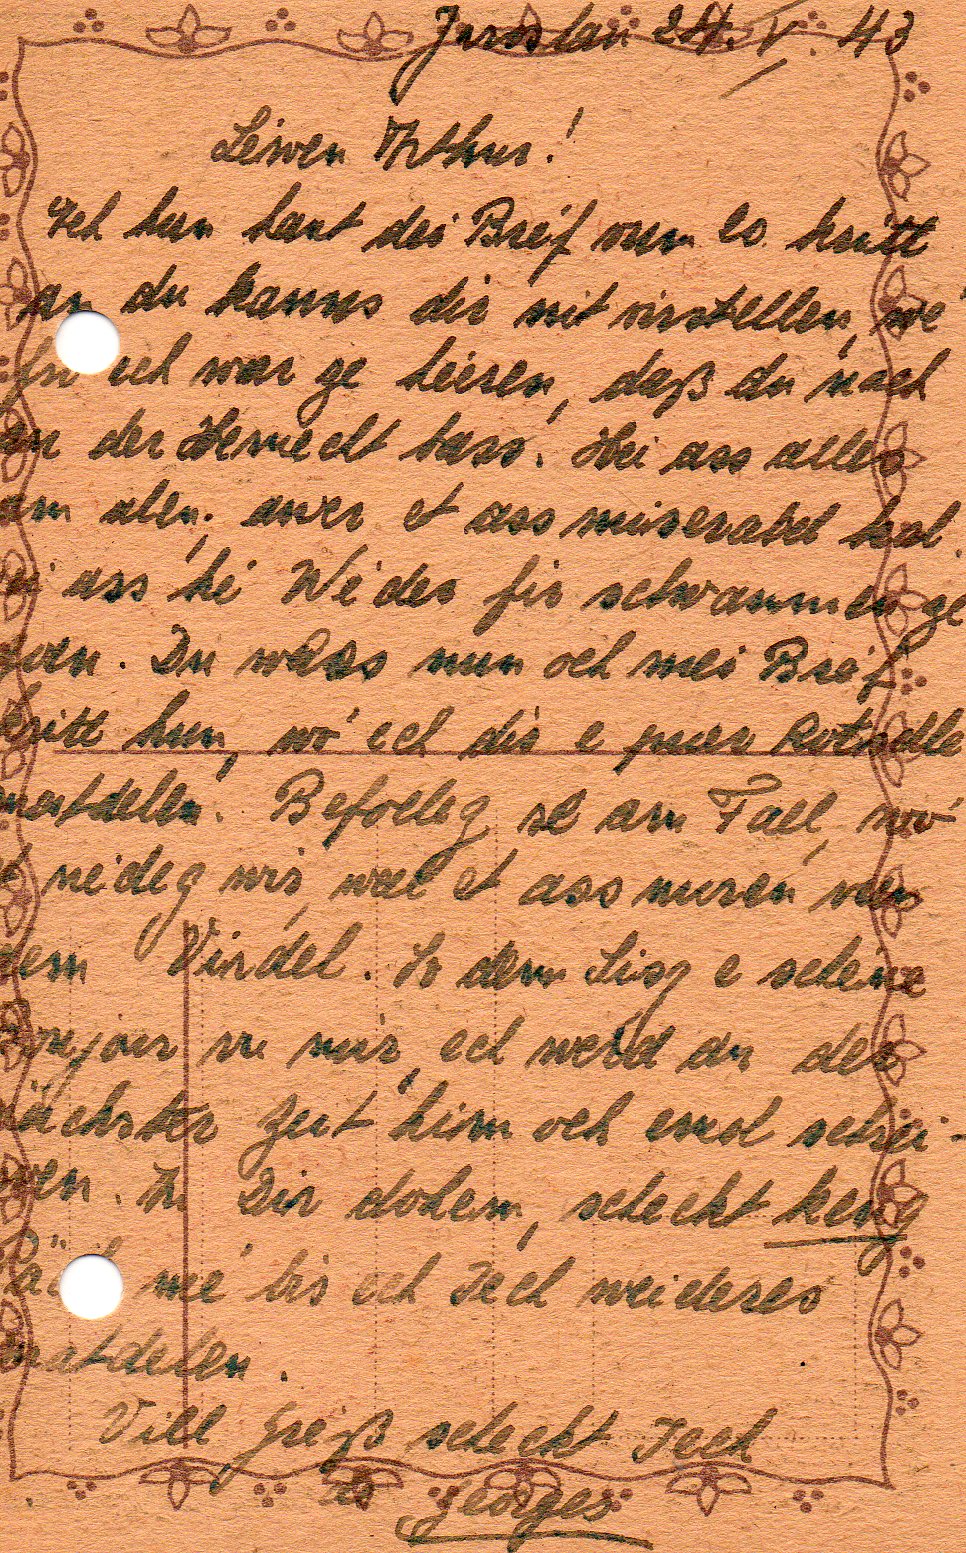 Jaroslau 24. V. 43
Léiwen Arthur!
Ech hun haut déi Bréf vum 20. kritt
an du kanns dir nit virstellen, wé
fro ech war ge liesen, daß du nach
an der Hemecht bass. Hei ass alles
am alen, awer et ass miserabel kal.
ass hé Wéder fir schwammen ge
goen. Du wäss nun och mei Bréf
kritt hun, wó ech dir e puer Rotschlé
matdelen. Befolleg se am Fall, wó
et néideg wir, well et ass nuren vun
dem Virdel. So dem Lisy e schéine
Bonjour vu mir, ech werd an der
nächster Zeit him och emol schrei-
wen. Zu Dir dohem, schéckt keng
Päck mé bis ech Iech weideres
matdelen.
Vill Gréiß schéckt Iech
Georges